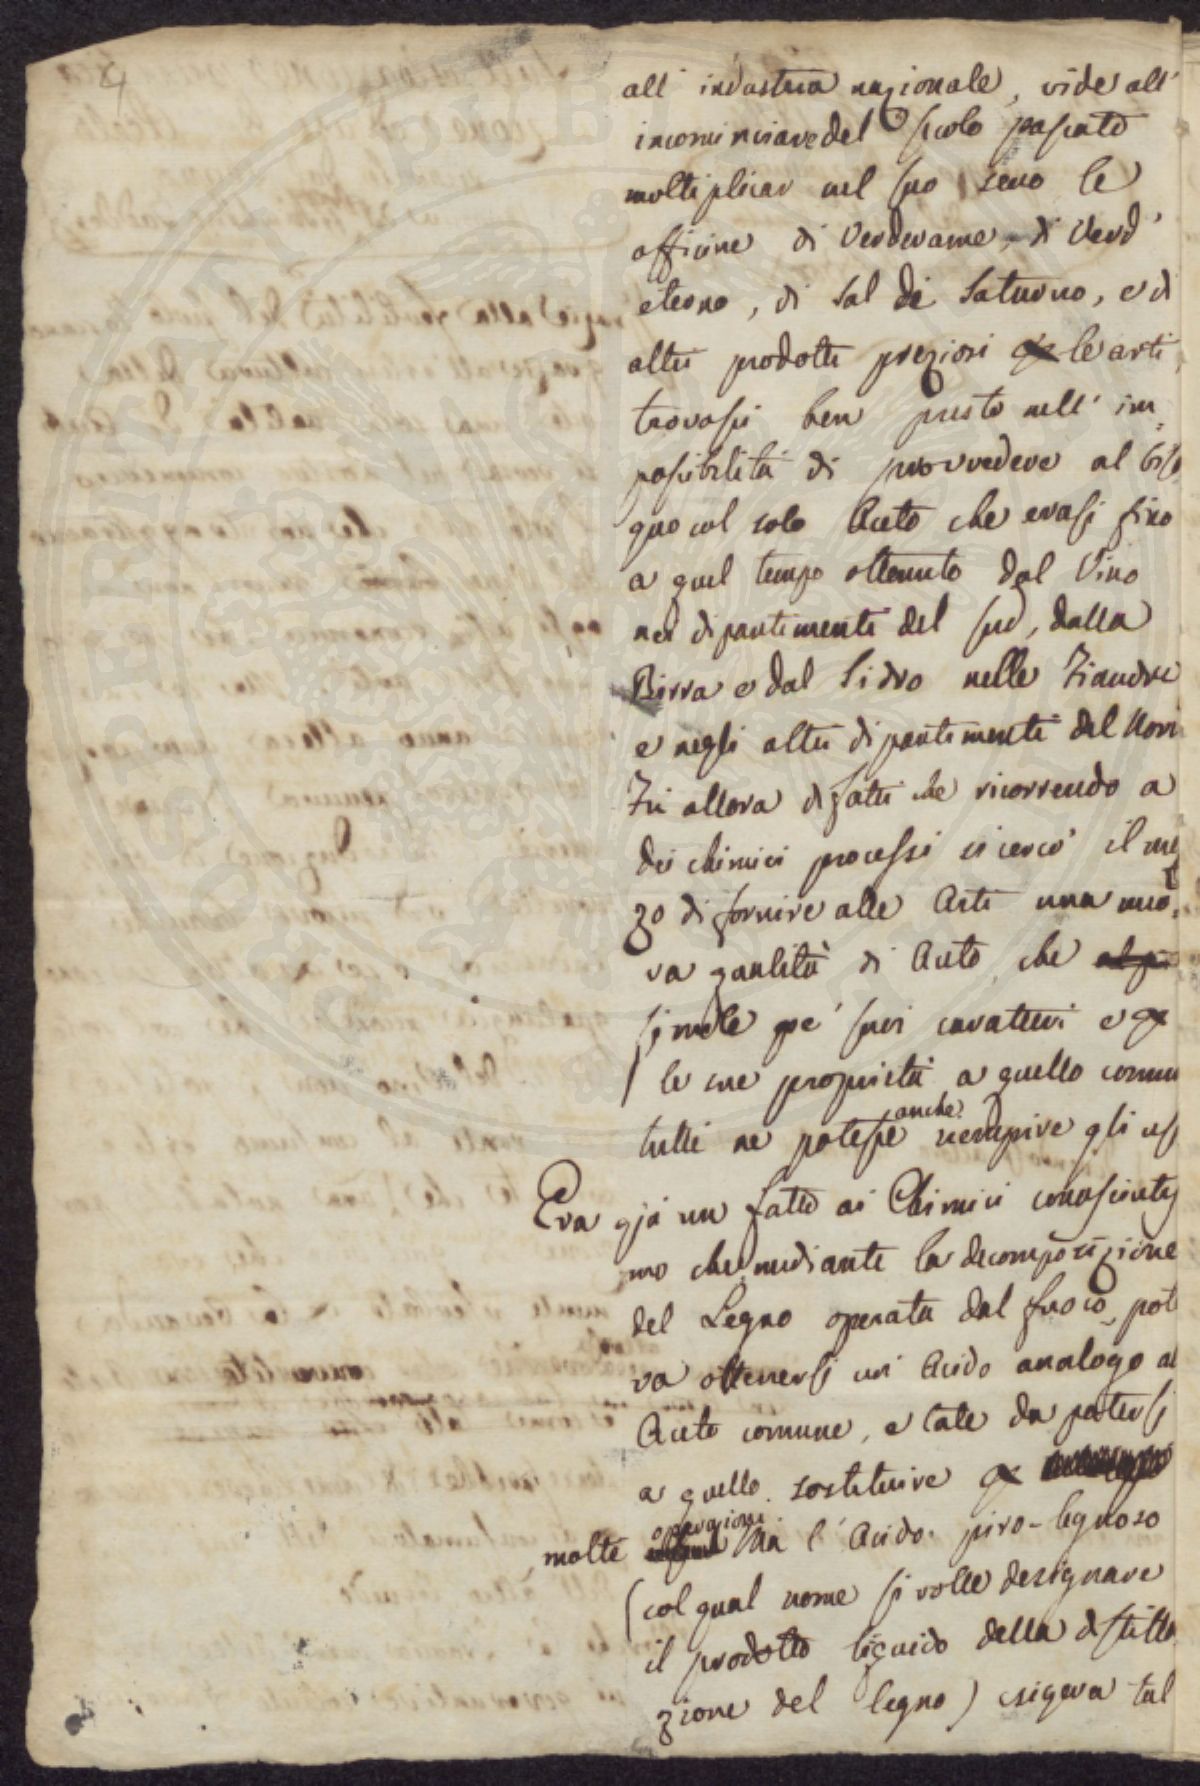 4
all' industria nazionale, vide all'
incominciare del secolo passato
moltiplicar nel suo seno le
officine di Verderame, di Verd'
eterno, di Sal di Saturno, e di
altri prodotti preziosi le arti,
trovossi ben presto nell' im
possibilità di provvedere al biso
gno col solo Aceto che erasi fino
a quel tempo ottenuto dal Vino
nei dipartimenti del sud, dalla
Birra e dal Sidro nelle Fiandre
e negli altri dipartimenti del Nord
Fu allora difatti che ricorrendo a
dei chimici processi si cercò il mez
zo di fornire alle Arti una nuo
va qualità di Aceto, che
simile pe' suoi caratteri e
le sue proprietà a quello comun
tutti ne potesse anche riempire gli usi
Era già un fatto ai Chimici conosciutis
mo che mediante la decomposizione
del Legno operata dal fuoco, pote
va ottenersi un Acido analogo al
Aceto comune, e tale da potersi
a quello sostituire
molte operazioni. Ma l' Acido piro-legnoso
(col qual nome si volle designare
il prodotto liquido della distilla
zione del legno) esigeva tal
PROSPERITATI PUBLICAE